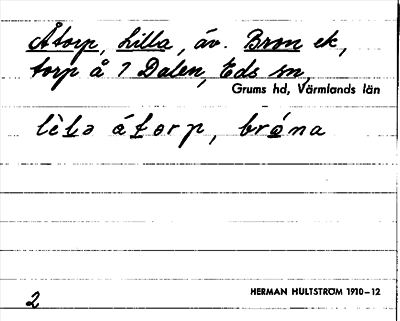 Åtorp, Lilla, äv. Bron ek,
torp å 7 Dalen, Eds sn,
Grums hd, Värmlands län
lìlə átorp, bróna
2
HERMAN HULTSTRÖM 1910–12